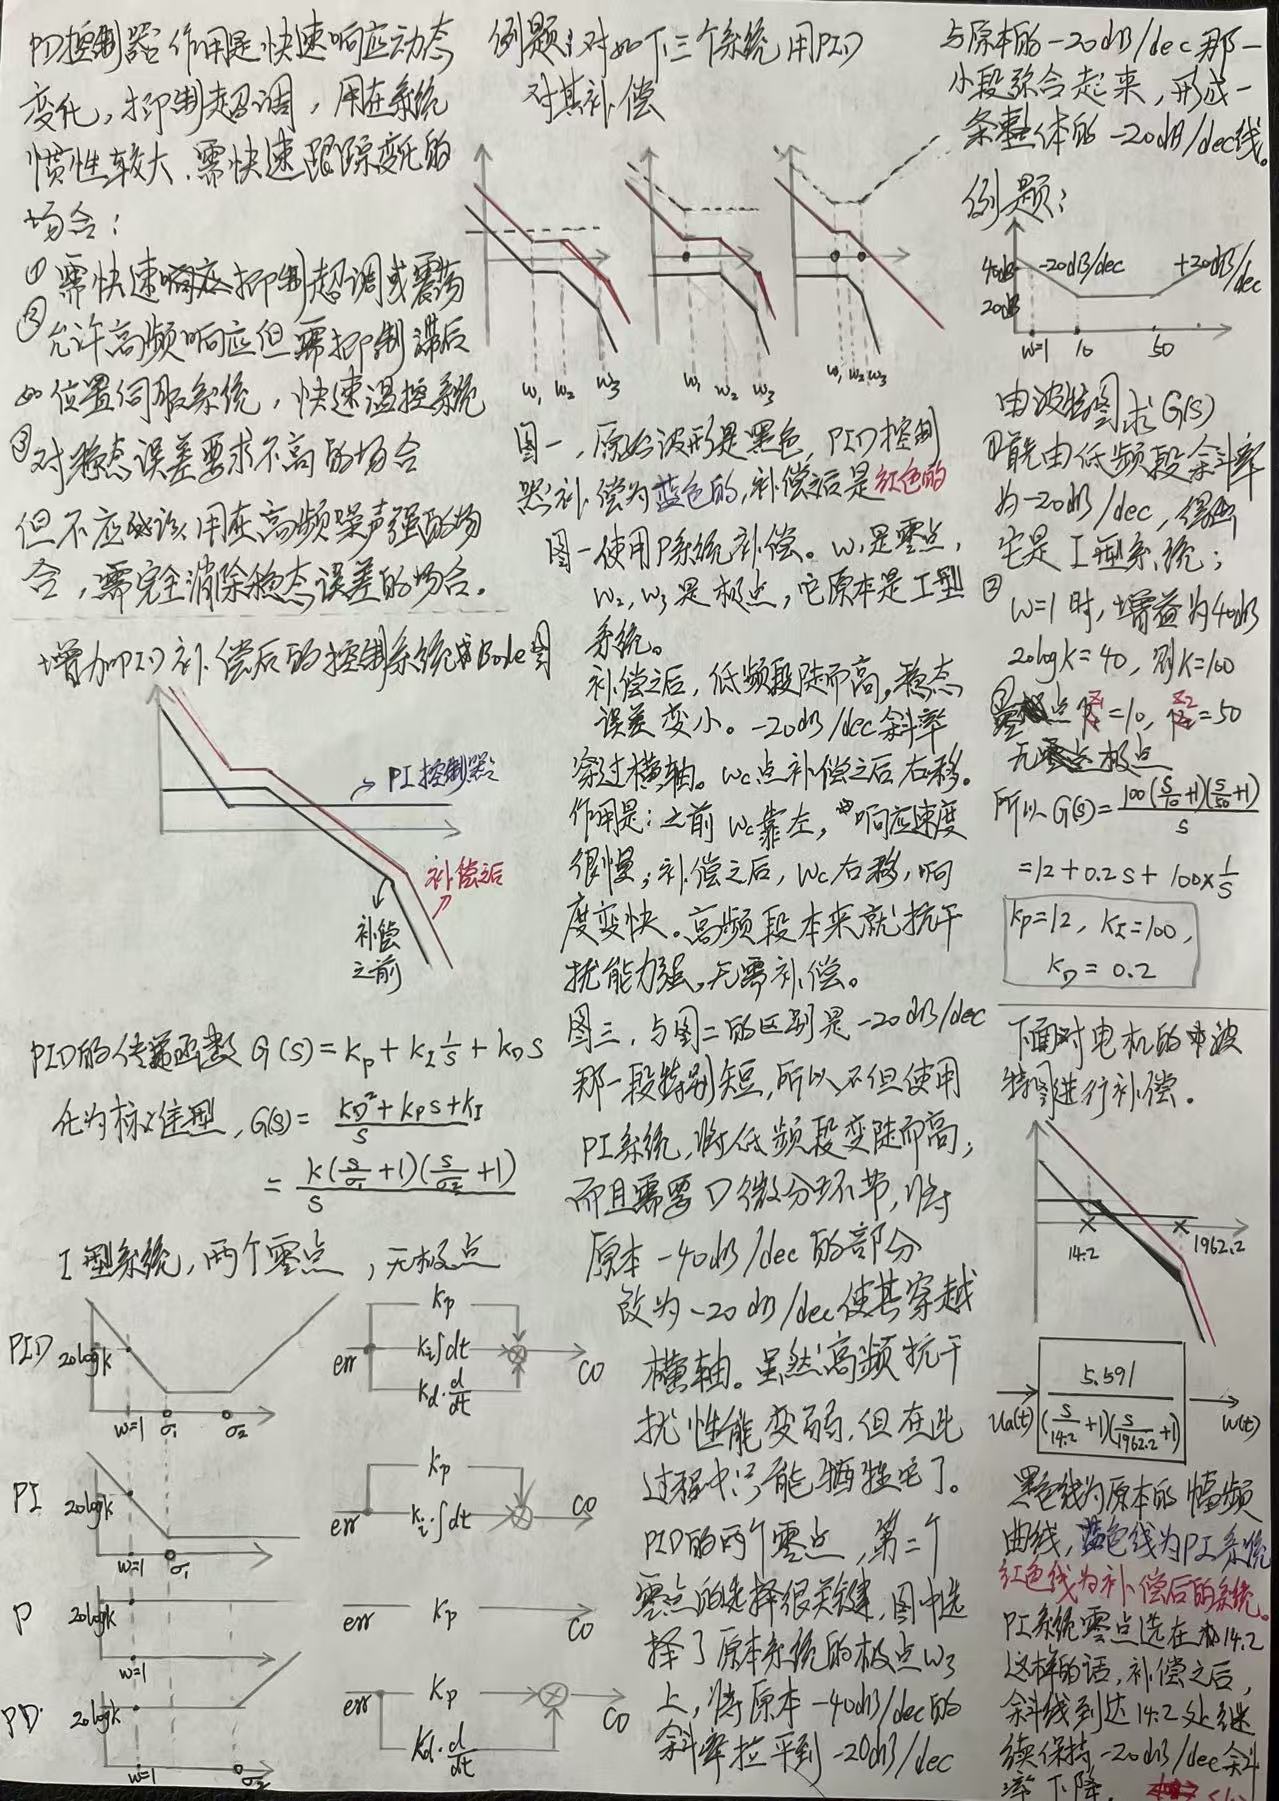 PD控制器作用是快速响应动态
变化，抑制超调，用在系统
惯性较大、需快速跟踪变化的
场合：
① 需快速响应抑制超调或震荡
② 允许高频响应但需抑制滞后
如位置伺服系统，快速温控系统
③ 对稳态误差要求不高的场合
但不应该用在高频噪声强的场
合，需完全消除稳态误差的场合。
增加PID补偿后的控制系统Bode图
PI控制器
补偿之后
补偿
之前
PID的传递函数 G(s)=kp+kI 1/s+kD s
化为标准型，G(s)= (kD²+kPs+kI)/s
= k(s/σ1+1)(s/σ2+1)/s
I型系统，两个零点，无极点
PID 20logk
w=1 σ1 σ2
err kp ki∫dt kd·d/dt CO
PI 20logk
w=1 σ1
err kp ki·∫dt CO
P 20logk
w=1
err kp CO
PD 20logk
w=1 σ2
err kp kd·d/dt CO
例题：对如下三个系统用PID
对其补偿
w1 w2 w3
w1 w2 w3
w1 w2 w3
图一，原始波形是黑色，PID控制
器补偿为蓝色的，补偿后是红色的
图一使用P系统补偿。w1是零点，
w2，w3是极点，它原本是I型
系统。
补偿之后，低频段陡而高，稳态
误差变小。-20dB/dec斜率
穿过横轴。wc点补偿之后右移。
作用是：之前wc靠左，响应速度
很慢；补偿之后，wc右移，响
度变快。高频段本来就抗干
扰能力强，无需补偿。
图三，与图二的区别是-20dB/dec
那一段特别短，所以不但使用
PI系统，将低频段变陡而高，
而且需要D微分环节，将
原本-40dB/dec的部分
改为-20dB/dec使其穿越
横轴。虽然高频抗干
扰性能变弱，但在此
过程中只能牺牲它了。
PID的两个零点，第二个
零点的选择很关键，图中选
择了原本系统的极点w3
上，将原本-40dB/dec的
斜率拉平到-20dB/dec
与原本的-20dB/dec那一
小段弥合起来，形成一
条整体的-20dB/dec线。
例题：
40dB -20dB/dec +20dB/dec
20dB
w=1 10 50
由波特图求G(s)
①首先由低频段斜率
为-20dB/dec，得出
它是I型系统；
② w=1时，增益为40dB
20logk=40，则k=100
③零点 z1=10，z2=50
无极点
所以G(s)= 100(s/10+1)(s/50+1)/s
=12+0.2s+100×1/s
kp=12，kI=100，
kD=0.2
下面对电机的波
特图进行补偿。
14.2 1962.2
Ua(t) 5.591/(s/14.2+1)(s/1962.2+1) w(t)
黑色线为原本的幅频
曲线，蓝色线为PI系统
红色线为补偿后的系统。
PI系统零点选在14.2
这样的话，补偿之后，
斜线到达14.2处继
续保持-20dB/dec斜
率下降。